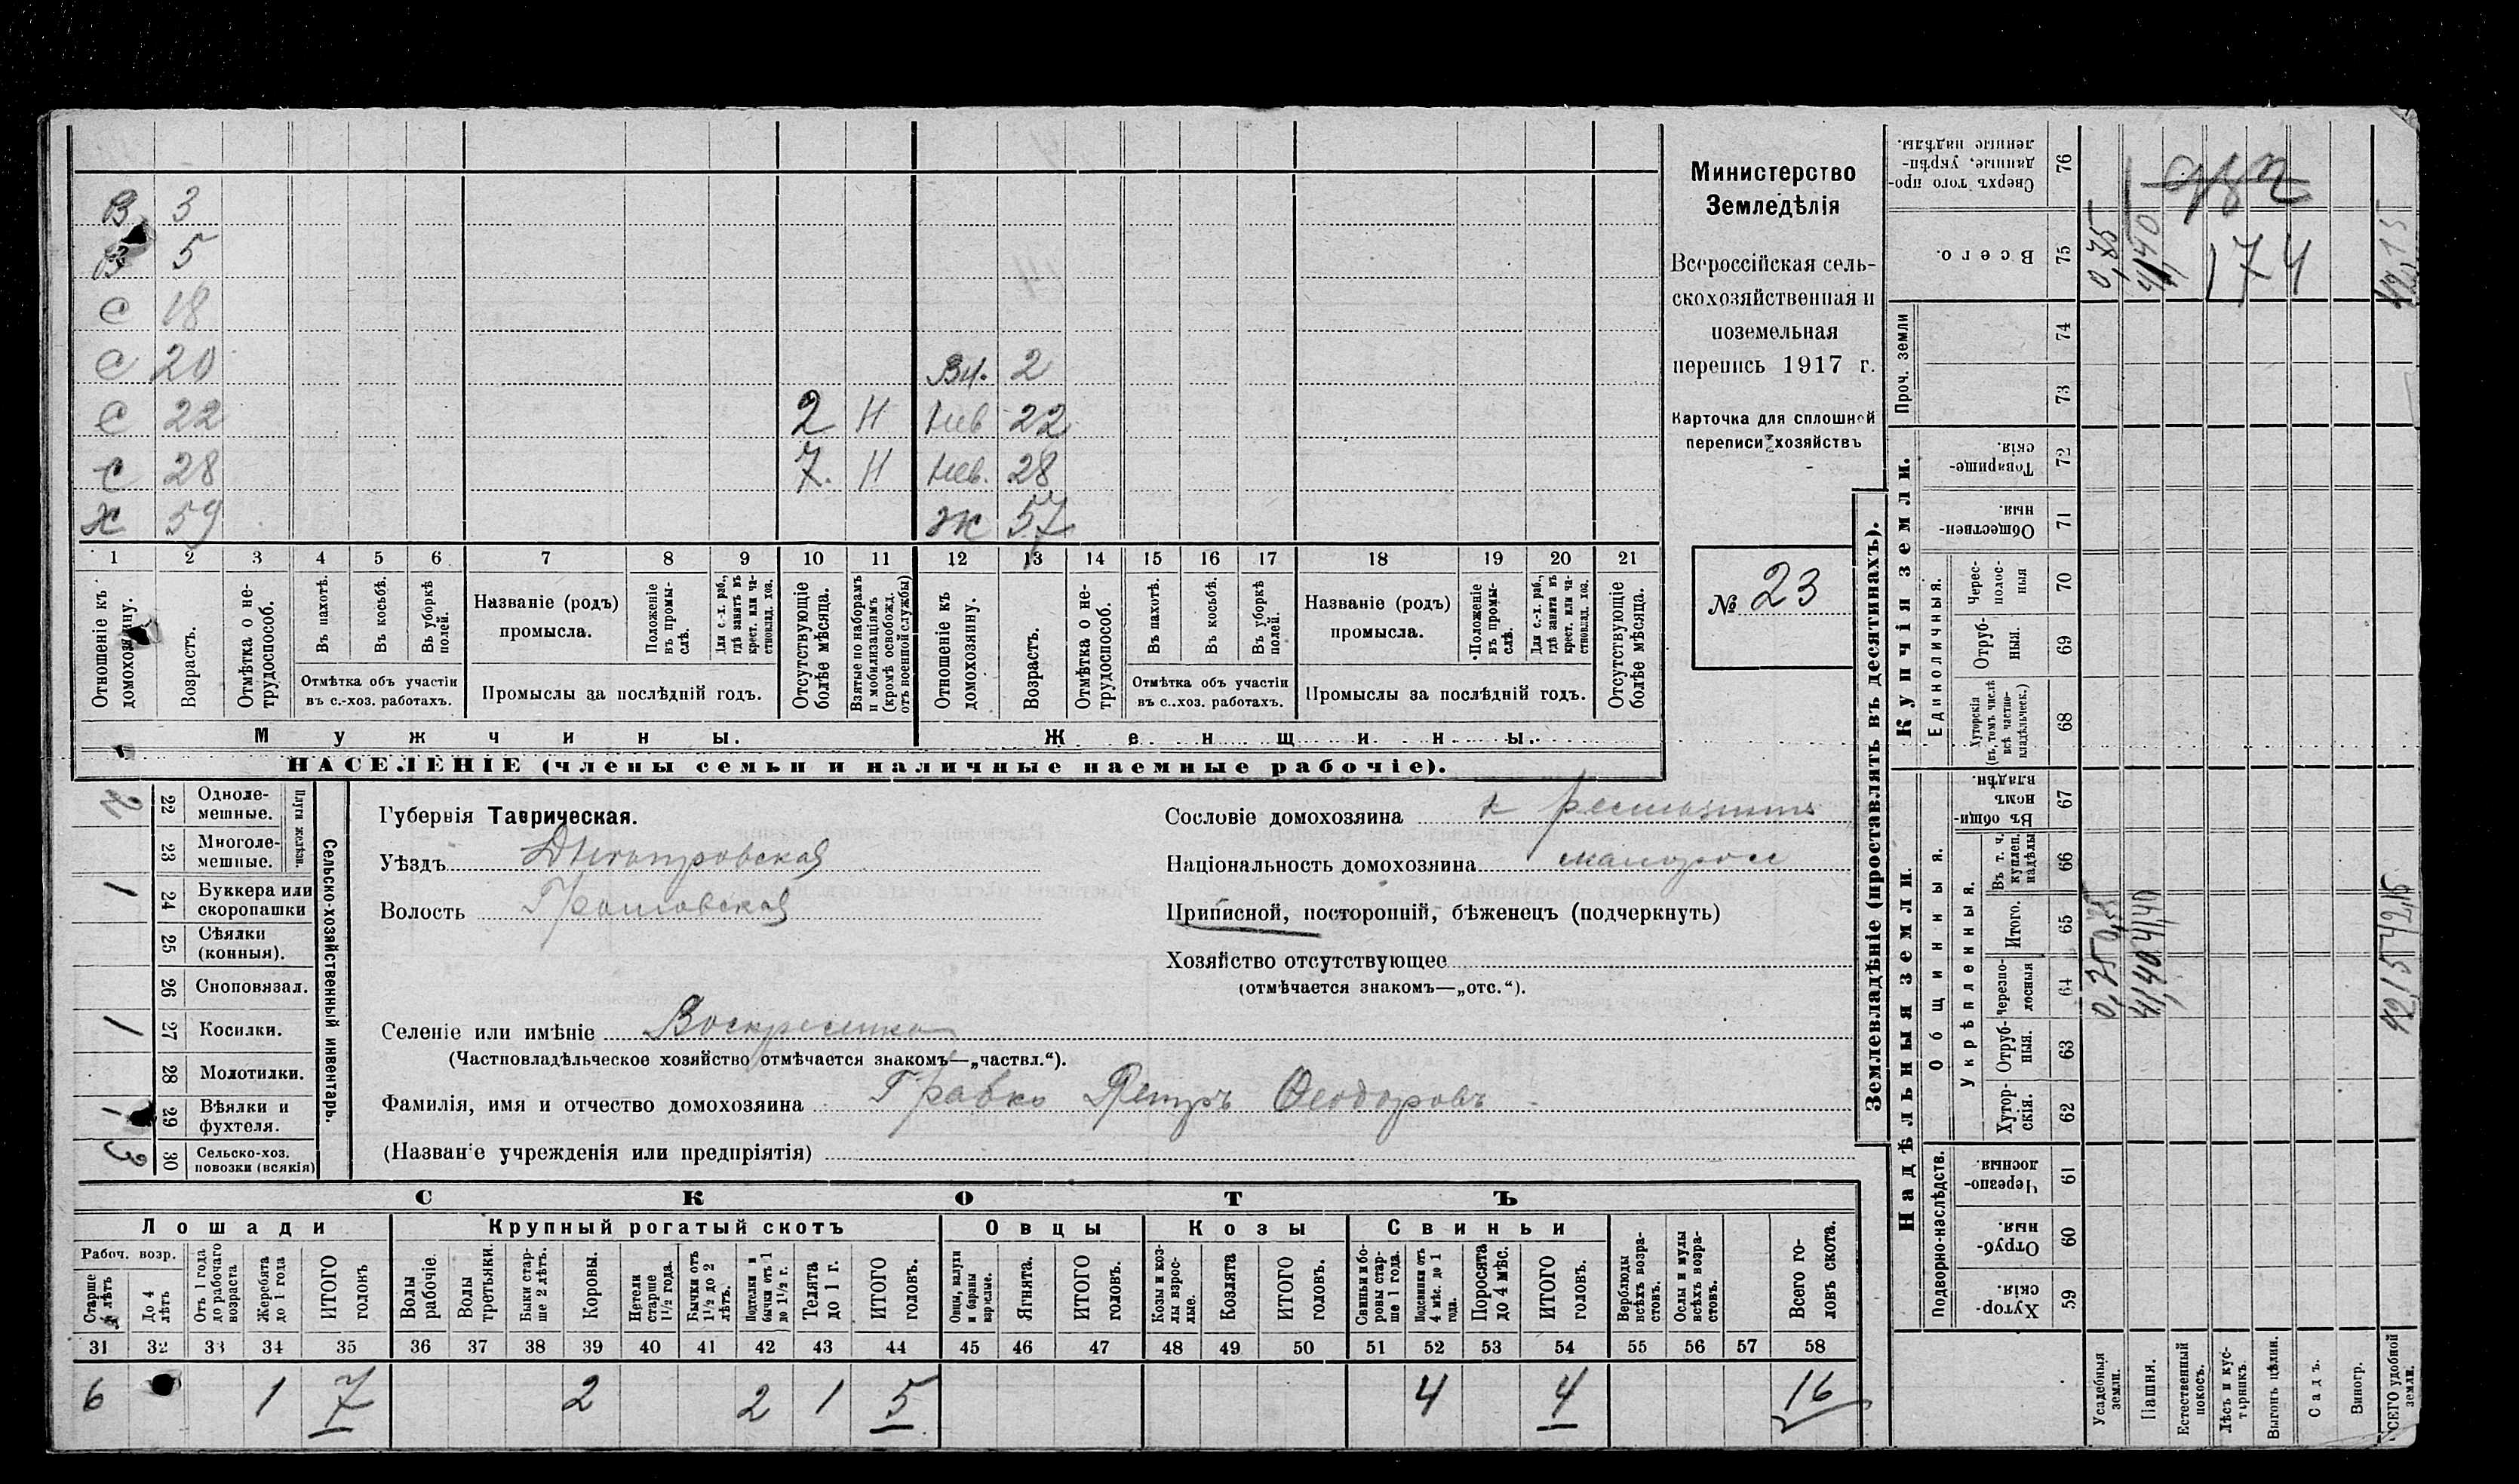 В 3
В 5
С 18
С 20 Вн. 2
С 22 2 Н Нев 22
С 28 7. Н Нев. 28
Х 59 Ж 57
1 2 3 4 5 6 7 8 9 10 11 12 13 14 15 16 17 18 19 20 21
Отношеніе къ домохозяину.
Возрастъ.
Отмѣтка о нетрудоспособ.
Въ пахотѣ.
Въ косьбѣ.
Въ уборкѣ полей.
Отмѣтка объ участіи въ с.-хоз. работахъ.
Названіе (родъ) промысла.
Положеніе въ промыслѣ.
Для с.-х. раб., гдѣ занятъ въ крест. или частновлад. хоз.
Промыслы за послѣдній годъ.
Отсутствующіе болѣе мѣсяца.
Взятые по наборамъ и мобилизаціямъ (кромѣ освобожд. отъ военной службы)
Отношеніе къ домохозяину.
Возрастъ.
Отмѣтка о нетрудоспособ.
Въ пахотѣ.
Въ косьбѣ.
Въ уборкѣ полей.
Отмѣтка объ участіи въ с.-хоз. работахъ.
Названіе (родъ) промысла.
Положеніе въ промыслѣ.
Для с.-х. раб., гдѣ занята въ крест. или частновлад. хоз.
Промыслы за послѣдній годъ.
Отсутствующіе болѣе мѣсяца.
Мужчины. Женщины.
НАСЕЛЕНІЕ (члены семьи и наличные наемные рабочіе).
Министерство
Земледѣлія
Всероссійская сель-
скохозяйственная и
поземельная
перепись 1917 г.
Карточка для сплошной
переписи хозяйствъ
№ 23
Сельско-хозяйственный инвентарь.
Плуги желѣзн.
2 22 Однолемешные.
23 Многолемешные.
1 24 Буккера или скоропашки
25 Сѣялки (конныя).
26 Сноповязал.
1 27 Косилки.
28 Молотилки.
1 29 Вѣялки и фухтеля.
3 30 Сельско-хоз. повозки (всякія)
Губернія Таврическая.
Уѣздъ Днепровская
Волость
Селеніе или имѣніе Воскресенка
(Частновладѣльческое хозяйство отмѣчается знакомъ—„частвл.“).
Фамилія, имя и отчество домохозяина Гравко Петръ Феодоровъ
(Названіе учрежденія или предпріятія)
Сословіе домохозяина
Національность домохозяина малоросс
Приписной, посторонній, бѣженецъ (подчеркнуть)
Хозяйство отсутствующее
(отмѣчается знакомъ—„отс.“).
СКОТЪ
Лошади Крупный рогатый скотъ Овцы Козы Свиньи
Рабоч. возр.
Старше 4 лѣтъ
До 4 лѣтъ
Отъ 1 года до рабочаго возраста
Жеребята до 1 года
ИТОГО головъ
Волы рабочіе.
Волы третьяки.
Быки старше 2 лѣтъ.
Коровы.
Нетели старше 1½ года.
Бычки отъ 1½ до 2 лѣтъ.
Подтелки и бычки отъ 1 до 1½ г.
Телята до 1 г.
ИТОГО головъ.
Овцы, валухи и бараны взрослые.
Ягнята.
ИТОГО головъ.
Козы и козлы взрослые.
Козлята
ИТОГО головъ.
Свиньи и боровы старше 1 года.
Подсвинки отъ 4 мѣс. до 1 года.
Поросята до 4 мѣс.
ИТОГО головъ.
Верблюды всѣхъ возрастовъ.
Ослы и мулы всѣхъ возрастовъ.
Всего головъ скота.
31 32 33 34 35 36 37 38 39 40 41 42 43 44 45 46 47 48 49 50 51 52 53 54 55 56 57 58
6 1 7 2 2 1 5 4 4 16
Землевладѣніе (проставлять въ десятинахъ).
Сверхъ того проданные, укрѣпленные надѣлы. 76
Всего. 75 0,75 41,40 174
Проч. земли
74
73
Купчія земли.
Товарищескія. 72
Общественныя. 71
Единоличныя.
Череcполосныя 70
Отрубныя. 69
Хуторскія (въ томъ числѣ всѣ частновладѣльческ.) 68
Надѣльныя земли.
Общинныя.
Въ общинномъ владѣн. 67
Укрѣпленныя.
Въ т. ч. куплен. надѣлы 66
Итого. 65
Черезполосныя 64 0,75 41,40 42,15
Отрубныя. 63
Хуторскія. 62
Подворно-наслѣдств.
Черезполосныя. 61
Отрубныя. 60
Хуторскія. 59
Усадебныя земли.
Пашня.
Естественный покосъ.
Лѣсъ и кустарникъ.
Выгонъ цѣлин.
Садъ.
Виногр.
ВСЕГО удобной земли.